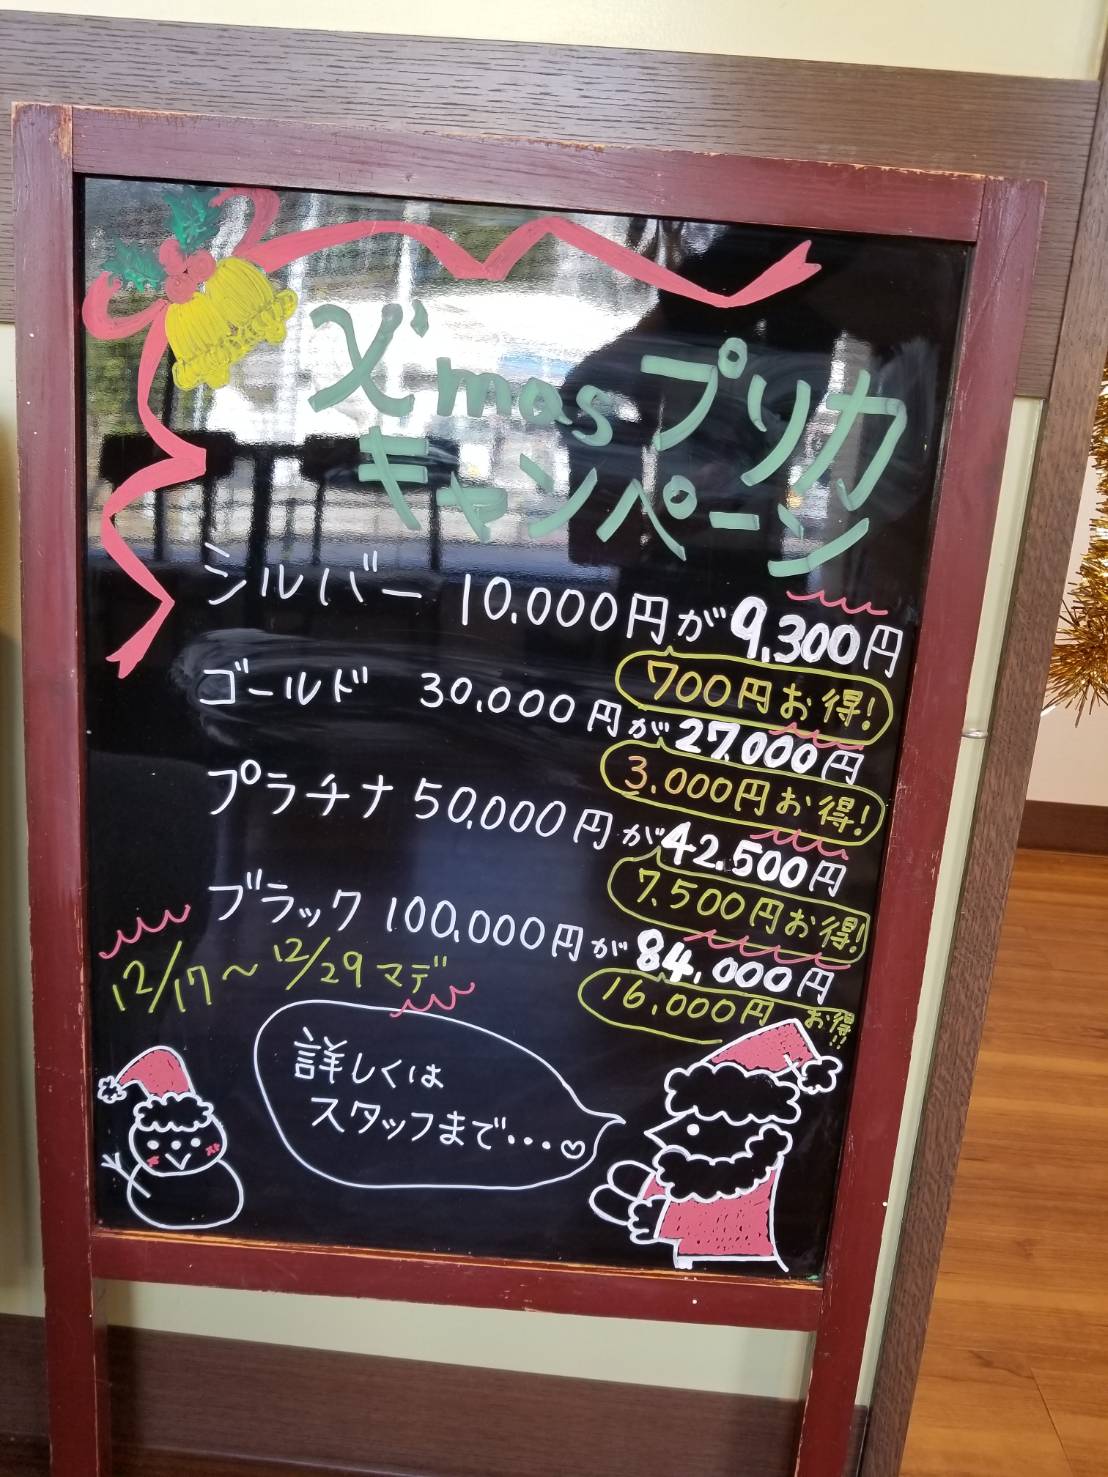 X'masプリカ
キャンペーン
シルバー 10,000円が9,300円
700円お得!
ゴールド 30,000円が27,000円
3,000円お得!
プラチナ 50,000円が42,500円
7,500円お得!
ブラック 100,000円が84,000円
16,000円 お得!!
12/17～12/29マデ
詳しくは
スタッフまで…♡